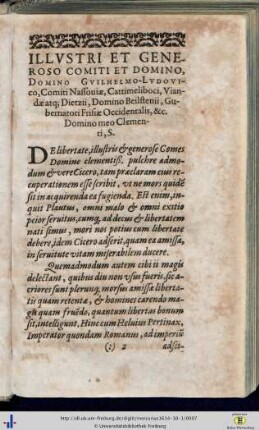 ILLVSTRI ET GENE-
ROSO COMITI ET DOMINO,
DOMINO GVILHELMO-LVDOVI-
co, Comiti Nassouiæ, Cattimeliboci, Vian-
dæ atq; Dietzii, Domino Beilstenii, Gu-
bernatori Frisiæ Occidentalis, &c.
Domino meo Clemen-
ti, S.
DE libertate, illustris & generose Comes
Domine clementiß. pulchre admo-
dum & vere Cicero, tam præclaram eius re-
cuperationem esse scribit, vt ne mors quidē
sit in acquirenda ea fugienda. Est enim, in-
quit Plautus, omni malo & omni exitio
peior seruitus, cumq; ad decus & libertatem
nati simus, mori nos potius cum libertate
debere, idem Cicero adserit, quam ea amissa,
in seruitute vitam miserabilem ducere.
Quemadmodum autem cibi ij magis
delectant, quibus diu non vsus fueris, sic a-
criores sunt plerunq; morsus amissæ liberta-
tis quam retentæ, & homines carendo ma-
gis quam fruēdo, quantum libertas bonum
sit, intelligunt. Hinc cum Heluius Pertinax,
Imperator quondam Romanus, ad imperiū
(:) 2 adsci-
http://dl.ub.uni-freiburg.de/diglit/
© Universitätsbibliothek Freiburg